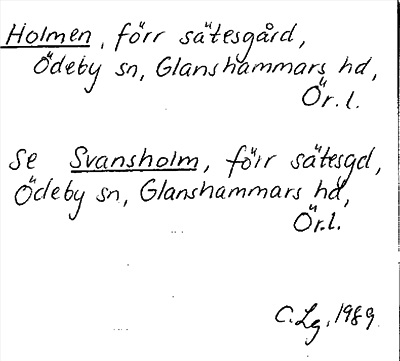 Holmen, förr sätesgård,
Ödeby sn, Glanshammars hd,
Ör. l.
Se Svansholm, förr sätesgd,
Ödeby sn, Glanshammars hd,
Ör. l.
C. Lg, 1989